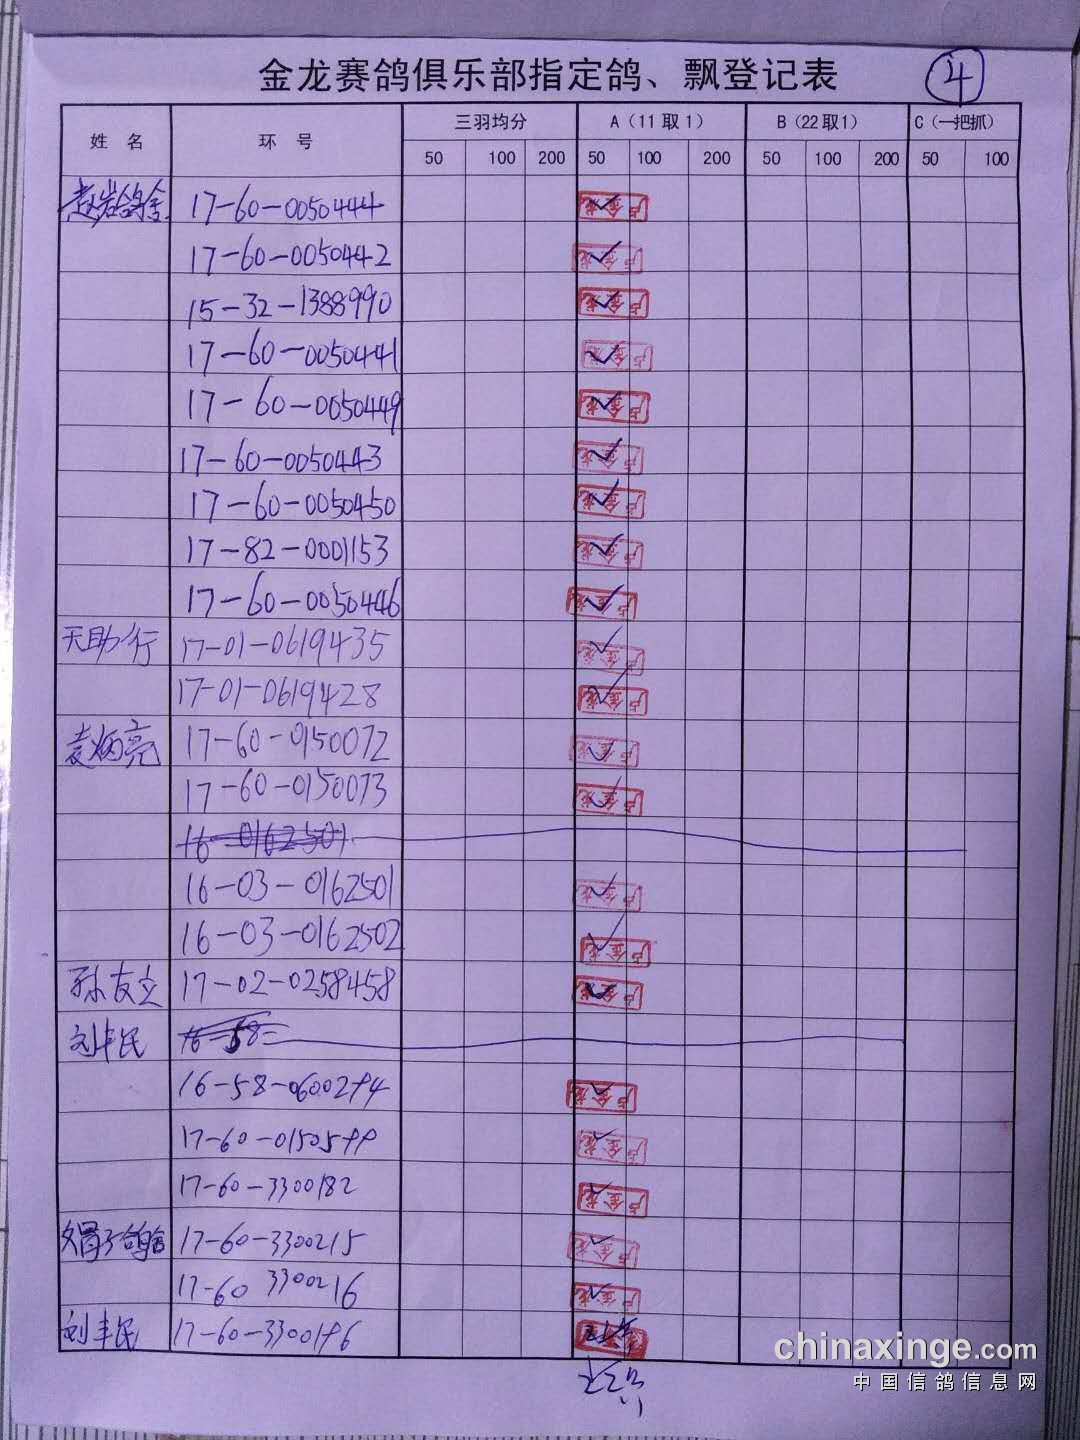 金龙赛鸽俱乐部指定鸽、飘登记表 4
姓 名 环 号 三羽均分 A（11取1） B（22取1） C（一把抓）
50 100 200 50 100 200 50 100 200 50 100
赵岩鸽舍 17-60-0050444
17-60-0050442
15-32-1388990
17-60-0050441
17-60-0050449
17-60-0050443
17-60-0050450
17-82-0001153
17-60-0050446
天助行 17-01-0619435
17-01-0619428
炳亮 17-60-0150072
17-60-0150073
16-0162501
16-03-0162501
16-03-0162502
孙友立 17-02-0258458
刘丰民 16-58-
16-58-0600294
17-60-0150599
17-60-3300182
鸽舍 17-60-3300215
17-60 3300216
刘丰民 17-60-3300196
chinaxinge.com
中国信鸽信息网